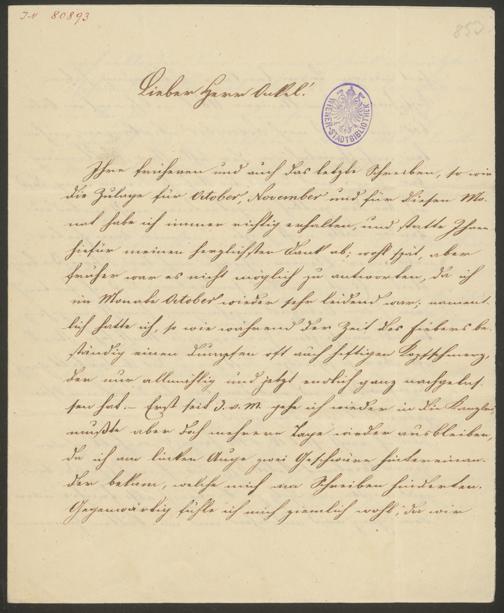 J.N. 80893
853
Lieber Herr Onkel!
WIENER-STADTBIBLIOTHEK
Ihre früheren und auch das letzte Schreiben, so wie
die Zulage für October, November und für diesen Mo-
nat habe ich immer richtig erhalten, und statte Ihnen
hiefür meinen herzlichsten Dank ab; wohl spät, aber
früher war es nicht möglich zu antworten, da ich
im Monate October wieder sehr leidend war; nament-
lich hatte ich, so wie während der Zeit des Fiebers be-
ständig einen dumpfen oft auch heftigen Kopfschmerz,
der nur allmählig und jetzt endlich ganz nachgelas-
sen hat. – Erst seit 3. v. M. gehe ich wieder in die Kanzlei,
mußte aber doch mehrere Tage wieder ausbleiben,
da ich am linken Auge zwei Geschwüre hintereinan-
der bekam, welche mich am Schreiben hinderten.
Gegenwärtig fühle ich mich ziemlich wohl; da wir